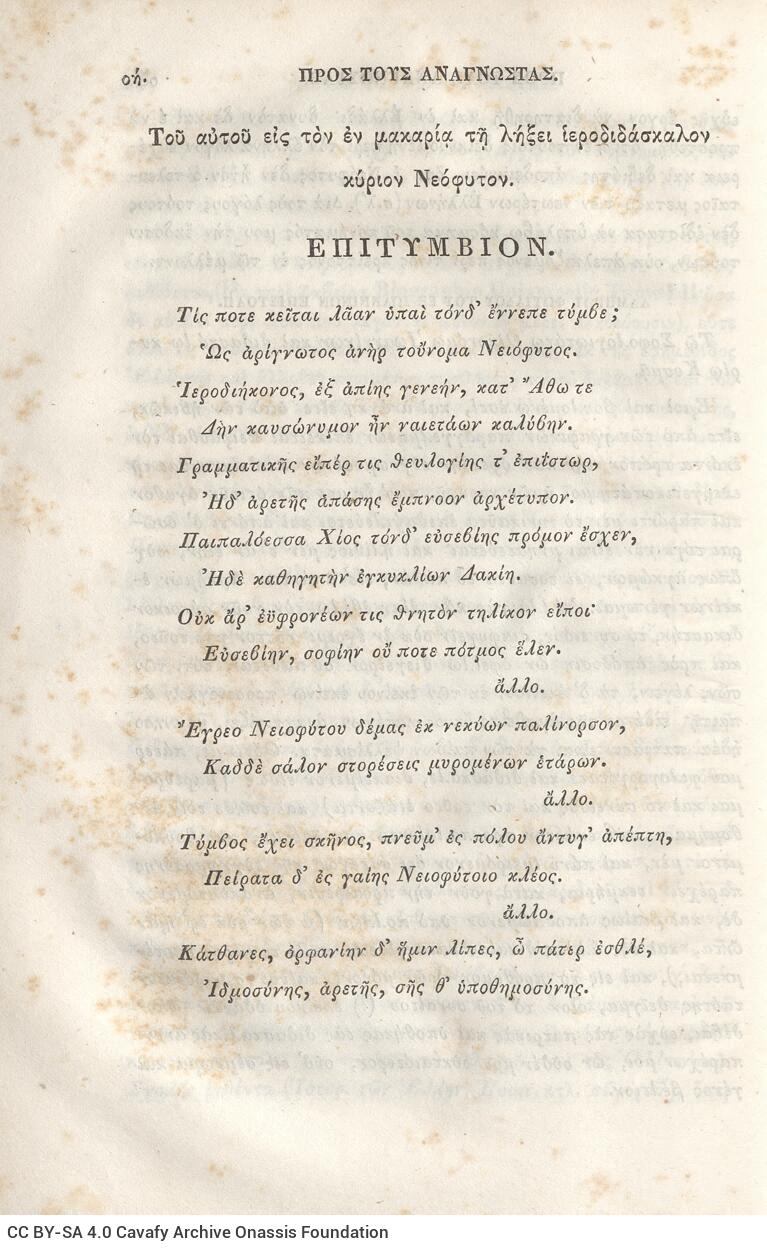 οή.
ΠΡΟΣ ΤΟΥΣ ΑΝΑΓΝΩΣΤΑΣ.
Τοῦ αὐτοῦ εἰς τὸν ἐν μακαρίᾳ τῇ λήξει ἱεροδιδάσκαλον
κύριον Νεόφυτον.
ΕΠΙΤΥΜΒΙΟΝ.
Τίς ποτε κεῖται λᾶαν ὑπαὶ τόνδ' ἔννεπε τύμβε;
Ὡς ἀρίγνωτος ἀνὴρ τοὔνομα Νειόφυτος.
Ἱεροδιήκονος, ἐξ ἀπίης γενεήν, κατ' Ἄθω τε
Δὴν καυσώνυμον ἦν ναιετάων καλύβην.
Γραμματικῆς εἴπέρ τις θευλογίης τ' ἐπιΐστωρ,
Ἠδ' ἀρετῆς ἁπάσης ἔμπνοον ἀρχέτυπον.
Παιπαλόεσσα Χίος τόνδ' εὐσεβίης πρόμον ἔσχεν,
Ἠδὲ καθηγητὴν ἐγκυκλίων Δακίη.
Οὐκ ἄρ' ἐϋφρονέων τις θνητὸν τηλίκον εἴποι·
Εὐσεβίην, σοφίην οὔ ποτε πότμος ἕλεν.
ἄλλο.
Ἔγρεο Νειοφύτου δέμας ἐκ νεκύων παλίνορσον,
Καδδὲ σάλον στορέσεις μυρομένων ἑτάρων.
ἄλλο.
Τύμβος ἔχει σκῆνος, πνεῦμ' ἐς πόλου ἄντυγ' ἀπέπτη,
Πείρατα δ' ἐς γαίης Νειοφύτοιο κλέος.
ἄλλο.
Κάτθανες, ὀρφανίην δ' ἥμιν λίπες, ὦ πάτερ ἐσθλέ,
Ἰδμοσύνης, ἀρετῆς, σῆς θ' ὑποθημοσύνης.
CC BY-SA 4.0 Cavafy Archive Onassis Foundation